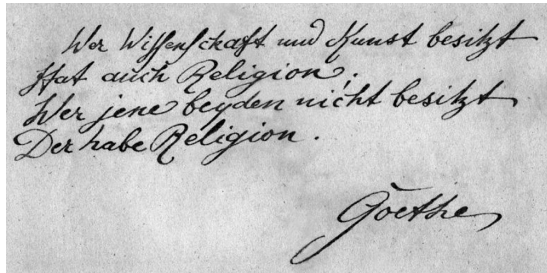 Wer Wissenschaft und Kunst besitzt
Hat auch Religion;
Wer jene beyden nicht besitzt
Der habe Religion.
Goethe